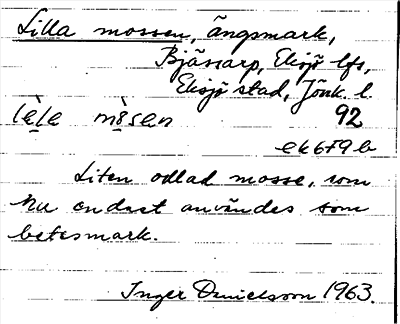 Lilla mossen, ängsmark,
Bjässarp, Eksjö lfs,
Eksjö stad, Jönk. l.
92
ek6f9b
Liten odlad mosse, som
nu endast användes som
betesmark.
Inger Danielsson 1963.